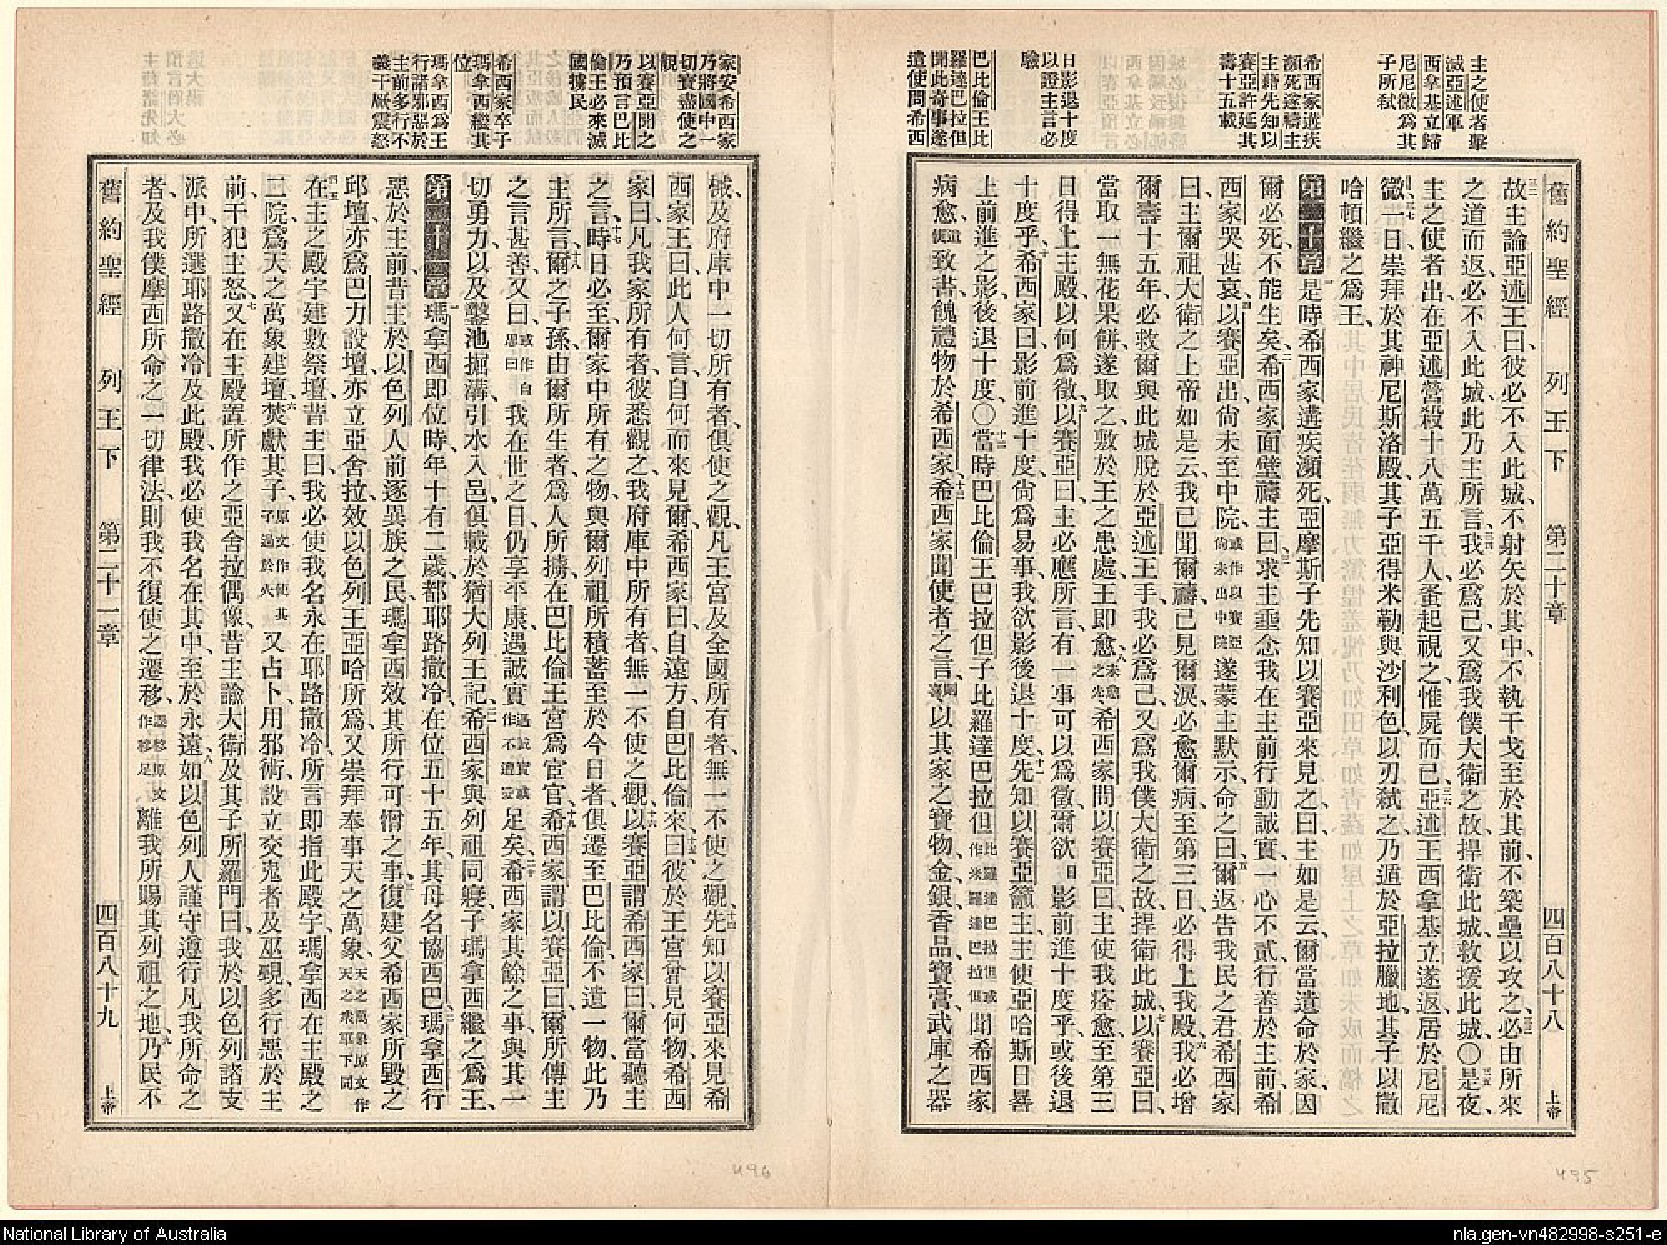 舊約聖經 列王下 第二十章 四百八十八 上帝
主之使者擊
滅亞述軍
西拿基立歸
尼尼微爲其
子所弑
希西家遘疾
瀕死遂禱主
主藉先知以
賽亞許延其
壽十五載
日影退十度
以證主言必
驗
巴比倫王比
羅達巴拉但
聞此奇事遂
遣使問希西
故主論亞述王曰、彼必不入此城、不射矢於其中、不執干戈至於其前、不築壘以攻之、必由所來
之道而返、必不入此城、此乃主所言、我必爲己又爲我僕大衛之故、捍衛此城、救援此城、〇是夜、
主之使者出、在亞述營殺十八萬五千人、蚤起視之、惟屍而已、亞述王西拿基立遂返、居於尼尼
微、一日、崇拜於其神尼斯洛殿、其子亞得米勒與沙利色、以刃弑之、乃遁於亞拉臘地、其子以撒
哈頓繼之爲王、
第二十章 是時希西家遘疾瀕死、亞摩斯子先知以賽亞來見之曰、主如是云、爾當遺命於家、因
爾必死、不能生矣、希西家面壁禱主曰、求主垂念我在主前行動誠實、一心不貳、行善於主前、希
西家哭甚哀、以賽亞出、尙未至中院、或作以賽亞尙未出中院遂蒙主默示、命之曰、爾返告我民之君希西家
曰、主爾祖大衛之上帝如是云、我已聞爾禱、已見爾淚、必愈爾病、至第三日必得上我殿、我必增
爾壽十五年、必救爾與此城脫於亞述王手、我必爲己又爲我僕大衛之故、捍衛此城、以賽亞曰、
當取一無花果餠、遂取之、敷於王之患處、王即愈、未愈之先希西家問以賽亞曰、主使我痊愈、至第三
日得上主殿、以何爲徵、以賽亞曰、主必應所言、有一事可以爲徵、爾欲日影前進十度乎、或後退
十度乎、希西家曰、影前進十度、尙爲易事、我欲影後退十度、先知以賽亞籲主、主使亞哈斯日晷
上前進之影、後退十度、〇當時巴比倫王巴拉但子比羅達巴拉但、比羅達巴拉但或作米羅達巴拉但聞希西家
病愈、遣使致書、餽禮物於希西家、希西家聞使者之言、則喜以其家之寶物、金銀、香品、寶膏、武庫之器
舊約聖經 列王下 第二十一章 四百八十九 上帝
家安希西家
乃將國中一
切寶盡使之
觀
以賽亞聞之
乃預言巴比
倫王必來滅
國擄民
希西家卒子
瑪拿西繼其
位
瑪拿西爲王
行諸邪惡於
主前多行不
義干厥震怒
械、及府庫中一切所有者、俱使之觀、凡王宮及全國所有者、無一不使之觀、先知以賽亞來見希
西家王曰、此人何言、自何而來見爾、希西家曰、自遠方、自巴比倫來、曰、彼於王宮曾見何物、希西
家曰、凡我家所有者、彼悉觀之、我府庫中所有者、無一不使之觀、以賽亞謂希西家曰、爾當聽主
之言、時日必至、爾家中所有之物與爾列祖所積蓄至於今日者、俱遷至巴比倫、不遺一物、此乃
主所言、爾之子孫、由爾所生者、爲人所擄、在巴比倫王宮爲宦官、希西家謂以賽亞曰、爾所傳主
之言甚善、又曰、或作自思曰我在世之日、仍享平康、遇誠實、遇誠實或作不遭災足矣、希西家其餘之事、與其一
切勇力、以及鑿池掘溝引水入邑、俱載於猶大列王記、希西家與列祖同寢、子瑪拿西繼之爲王、
第二十一章 瑪拿西即位時、年十有二歲、都耶路撒冷、在位五十五年、其母名協西巴、瑪拿西行
惡於主前、昔主於以色列人前逐異族之民、瑪拿西效其所行可惛之事、復建父希西家所毀之
邱壇、亦爲巴力設壇、亦立亞舍拉、效以色列王亞哈所爲、又崇拜奉事天之萬象、天之萬象原文作天之衆軍下同
在主之殿宇建數祭壇、昔主曰、我必使我名永在耶路撒冷、所言即指此殿宇、瑪拿西在主殿之
二院、爲天之萬象建壇、焚獻其子、原文作使其子過於火又占卜、用邪術、設立交鬼者及巫覡、多行惡於主
前、干犯主怒、又在主殿置所作之亞舍拉偶像、昔主諭大衛及其子所羅門曰、我於以色列諸支
派中、所選耶路撒冷及此殿、我必使我名在其中、至於永遠、如以色列人謹守遵行凡我所命之
者、及我僕摩西所命之一切律法、則我不復使之遷移、遷移原文作移足離我所賜其列祖之地、乃民不
496
495
National Library of Australia
nla.gen-vn482998-s251-e